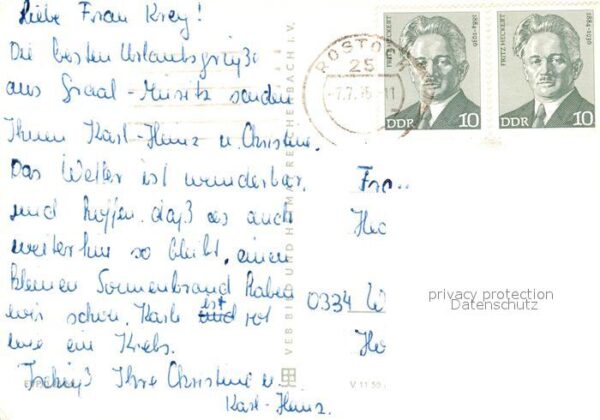 Liebe Frau Krey!
Die besten Urlaubsgrüße
aus Graal-Müritz senden
Ihnen Karl-Heinz u. Christine.
Das Wetter ist wunderbar,
und hoffen, daß es auch
weiterhin so bleibt, einen
kleinen Sonnenbrand haben
wir schon. Karli ist rot
wie ein Krebs.
Tschüß Ihre Christine u.
Karl-Heinz.
ROSTOCK
25
-7.7.
11
FRITZ HECKERT 1884-1936
DDR 10
FRITZ HECKERT 1884-1936
DDR 10
VEB BILD UND HEIMAT REICHENBACH I. V.
Frau
0334 W
privacy protection
Datenschutz
V 11 50